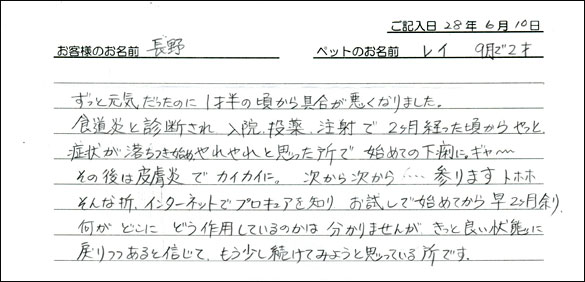 ご記入日 28年6月10日
お客様のお名前 長野 ペットのお名前 レイ 9月で2才
ずっと元気だったのに 1才半の頃から具合が悪くなりました。
食道炎と診断され、入院、投薬、注射で 2ヶ月経った頃からやっと
症状が落ちつき始めやれやれと思った所で 始めての下痢に。ギャ〜〜
その後は皮膚炎で カイカイに。 次から次から…… 参ります トホホ
そんな折、インターネットでプロキュアを知り お試しで始めてから早2ヶ月余り、
何が どこに どう作用しているのかは 分かりませんが、きっと良い状態に
戻りつつあると信じて、もう少し続けてみようと思っている所です。